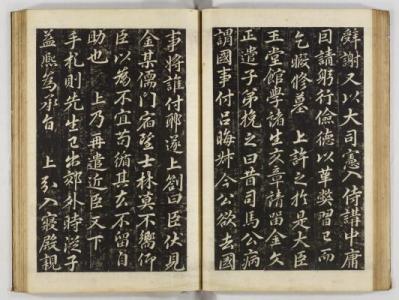 辭謝又以大司憲入侍講中庸
因請躬行儉德以革弊習已而
乞暇修墓 上許之於是大臣
玉堂館學諸生交章請留金文
正遣子弟挽之曰昔司馬公病
謂國事付呂晦叔 今公欲去國
事將誰付耶遂上劄曰臣伏見
金某儒門宿望士林莫不嚮仰
臣以爲不宜苟循其去不留自
助也 上乃再遣近臣又下
手札則先生已出郊外時從子
益熙爲承旨 上引入寢殿親